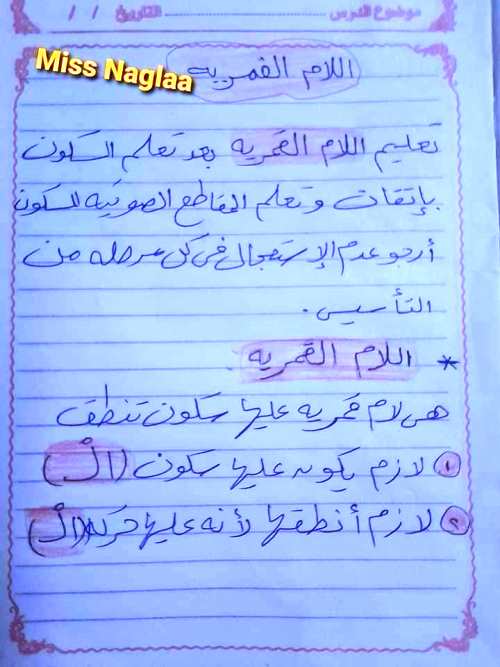 موضوع الدرس ........................ التاريخ / /
Miss Naglaa
اللام القمريه
تعليم اللام القمريه بعد تعلم السكون
بإتقان وتعلم المقاطع الصوتيه للسكون
أرجو عدم الإستعجال فى كل مرحله من
التأسيس.
* اللام القمريه
هى لام قمريه عليها سكون تنطق
١ لازم يكون عليها سكون (الْ)
٢ لازم أنطقها لأنه عليها حركه (الْ)